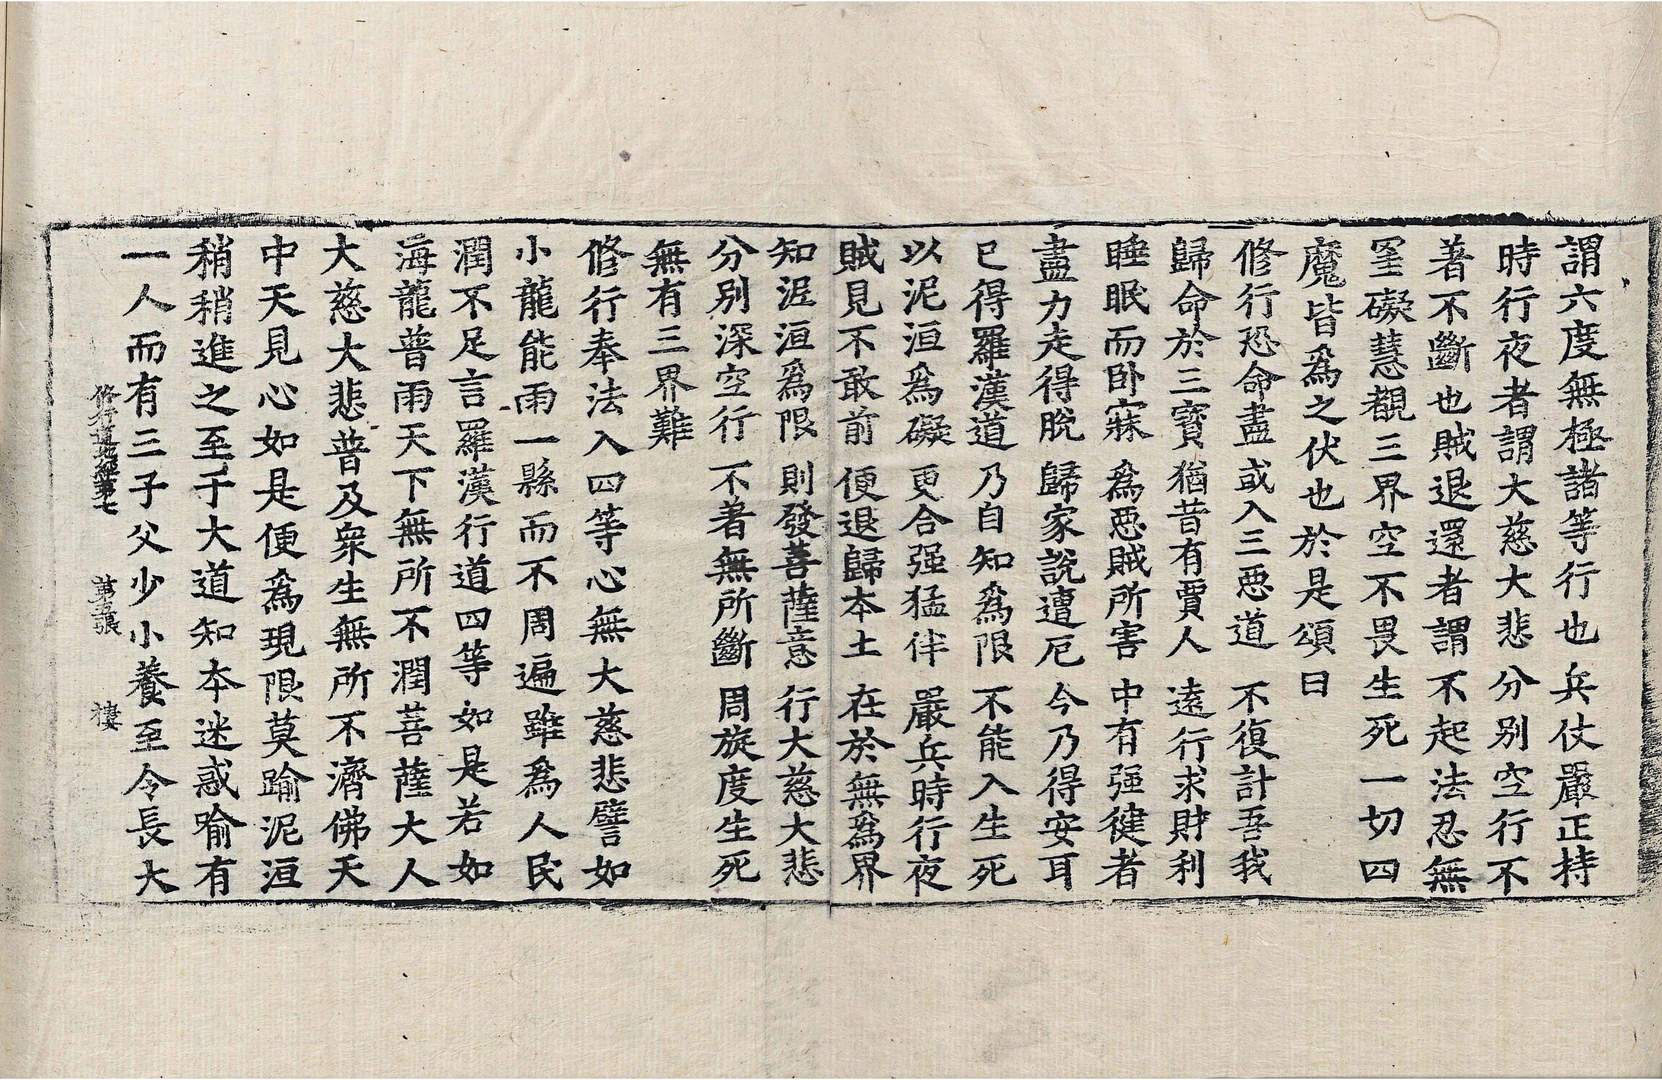 謂六度無極諸等行也兵仗嚴正持
時行夜者謂大慈大悲分別空行不
著不斷也賊退還者謂不起法忍無
罣礙慧觀三界空不畏生死一切四
魔皆爲之伏也於是頌曰
修行恐命盡 或入三惡道 不復計吾我
歸命於三寶 猶昔有賈人 遠行求財利
睡眠而卧寐 爲惡賊所害 中有强健者
盡力走得脫 歸家說遭厄 今乃得安耳
已得羅漢道 乃自知爲限 不能入生死
以泥洹爲礙 更合强猛伴 嚴兵時行夜
賊見不敢前 便退歸本土 在於無爲界
知泥洹爲限 則發菩薩意 行大慈大悲
分別深空行 不著無所斷 周旋度生死
無有三界難
修行奉法入四等心無大慈悲譬如
小龍能雨一縣而不周遍雖爲人民
潤不足言羅漢行道四等如是若如
海龍普雨天下無所不潤菩薩大人
大慈大悲普及衆生無所不濟佛天
中天見心如是便爲現限莫踰泥洹
稍稍進之至于大道知本迷惑喻有
一人而有三子父少小養至令長大
修行道地經第七 第五張 棲